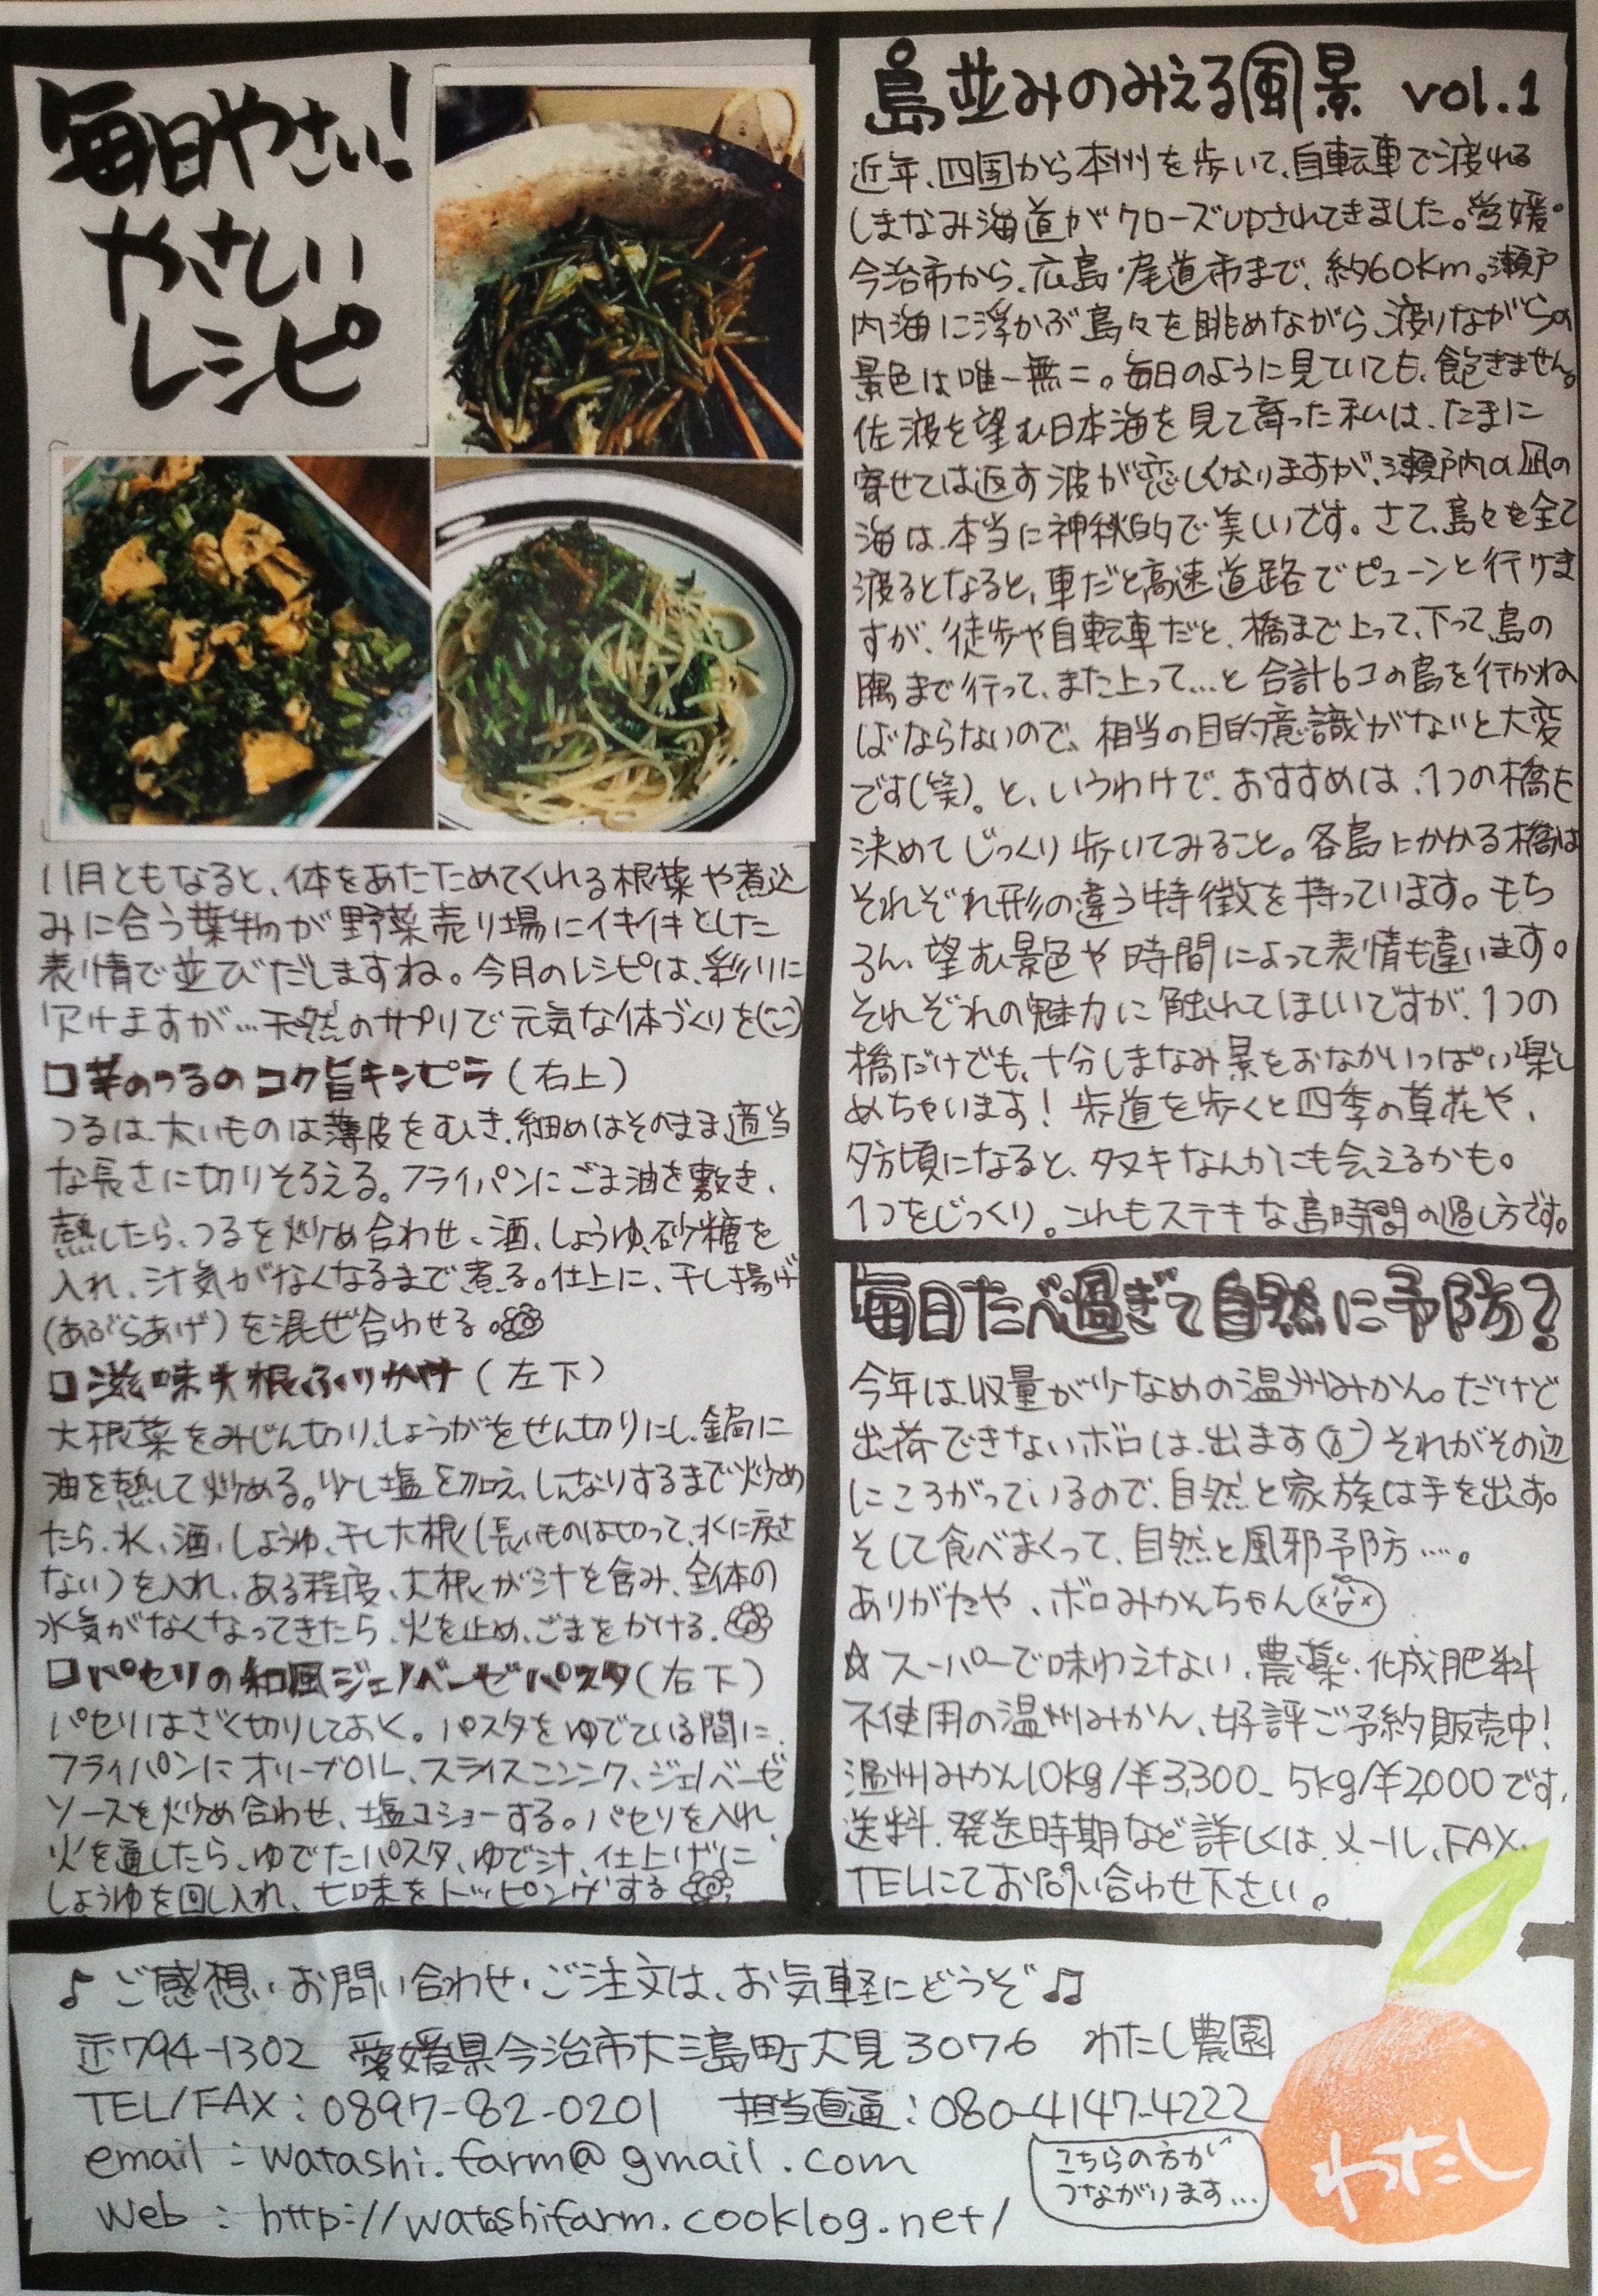 毎日やさい!
やさしい
レシピ
11月ともなると、体をあたためてくれる根菜や煮込
みに合う葉物が野菜売り場にイキイキとした
表情で並びだしますね。今月のレシピは、彩りに
欠けますが…天然のサプリで元気な体づくりを
□芋のつるのコク旨キンピラ(右上)
つるは、太いものは薄皮をむき、細めはそのまま適当
な長さに切りそろえる。フライパンにごま油を敷き、
熱したら、つるを炒め合わせ、酒、しょうゆ、砂糖を
入れ、汁気がなくなるまで煮る。仕上に、干し揚げ
(あぶらあげ)を混ぜ合わせる。
□滋味大根ふりかけ(左下)
大根菜をみじん切り、しょうがをせん切りにし、鍋に
油を熱して炒める。少し塩を加え、しんなりするまで炒め
たら、水、酒、しょうゆ、干し大根(長いものは切って、水に戻さ
ない)を入れ、ある程度、大根が汁を含み、全体の
水気がなくなってきたら、火を止め、ごまをかける。
□パセリの和風ジェノベーゼパスタ(右下)
パセリはざく切りしておく。パスタをゆでている間に、
フライパンにオリーブOIL、スライスニンニク、ジェノベーゼ
ソースを炒め合わせ、塩コショーする。パセリを入れ、
火を通したら、ゆでたパスタ、ゆで汁、仕上げに
しょうゆを回し入れ、七味をトッピングする
島並みのみえる風景 vol.1
近年、四国から本州を歩いて、自転車で渡れる
しまなみ海道がクローズUPされてきました。愛媛・
今治市から、広島・尾道市まで、約60Km。瀬戸
内海に浮かぶ島々を眺めながら、渡りながらの
景色は唯一無二。毎日のように見ていても、飽きません。
佐渡を望む日本海を見て育った私は、たまに
寄せては返す波が恋しくなりますが、瀬戸内の凪の
海は、本当に神秘的で美しいです。さて、島々を全て
渡るとなると、車だと高速道路でピューンと行けま
すが、徒歩や自転車だと、橋まで上って、下って、島の
隅まで行って、また上って…と合計6コの島を行かね
ばならないので、相当の目的意識がないと大変
です(笑)。と、いうわけで、おすすめは、1つの橋を
決めてじっくり歩いてみること。各島にかかる橋は
それぞれ形の違う特徴を持っています。もち
ろん、望む景色や時間によって表情も違います。
それぞれの魅力に触れてほしいですが、1つの
橋だけでも、十分しまなみ景をおなかいっぱい楽し
めちゃいます!歩道を歩くと四季の草花や、
夕方頃になると、タヌキなんかにも会えるかも。
1つをじっくり。これもステキな島時間の過し方です。
毎日たべ過ぎて自然に予防?
今年は収量が少なめの温州みかん。だけど
出荷できないボロは、出ます それがその辺
にころがっているので、自然と家族は手を出す。
そして食べまくって、自然と風邪予防……。
ありがたや、ボロみかんちゃん
☆スーパーで味わえない、農薬・化成肥料
不使用の温州みかん、好評ご予約販売中!
温州みかん10kg/¥3,300- 5kg/¥2,000です。
送料、発送時期など詳しくは、メール、FAX、
TELにてお問い合わせ下さい。
♪ご感想・お問い合わせ・ご注文は、お気軽にどうぞ♫
〒794-1302 愛媛県今治市大三島町大見3076 わたし農園
TEL/FAX:0897-82-0201 担当直通:080-4147-4222
email:watashi.farm@gmail.com
こちらの方が
つながります…
web:http://watashifarm.cooklog.net/
わたし